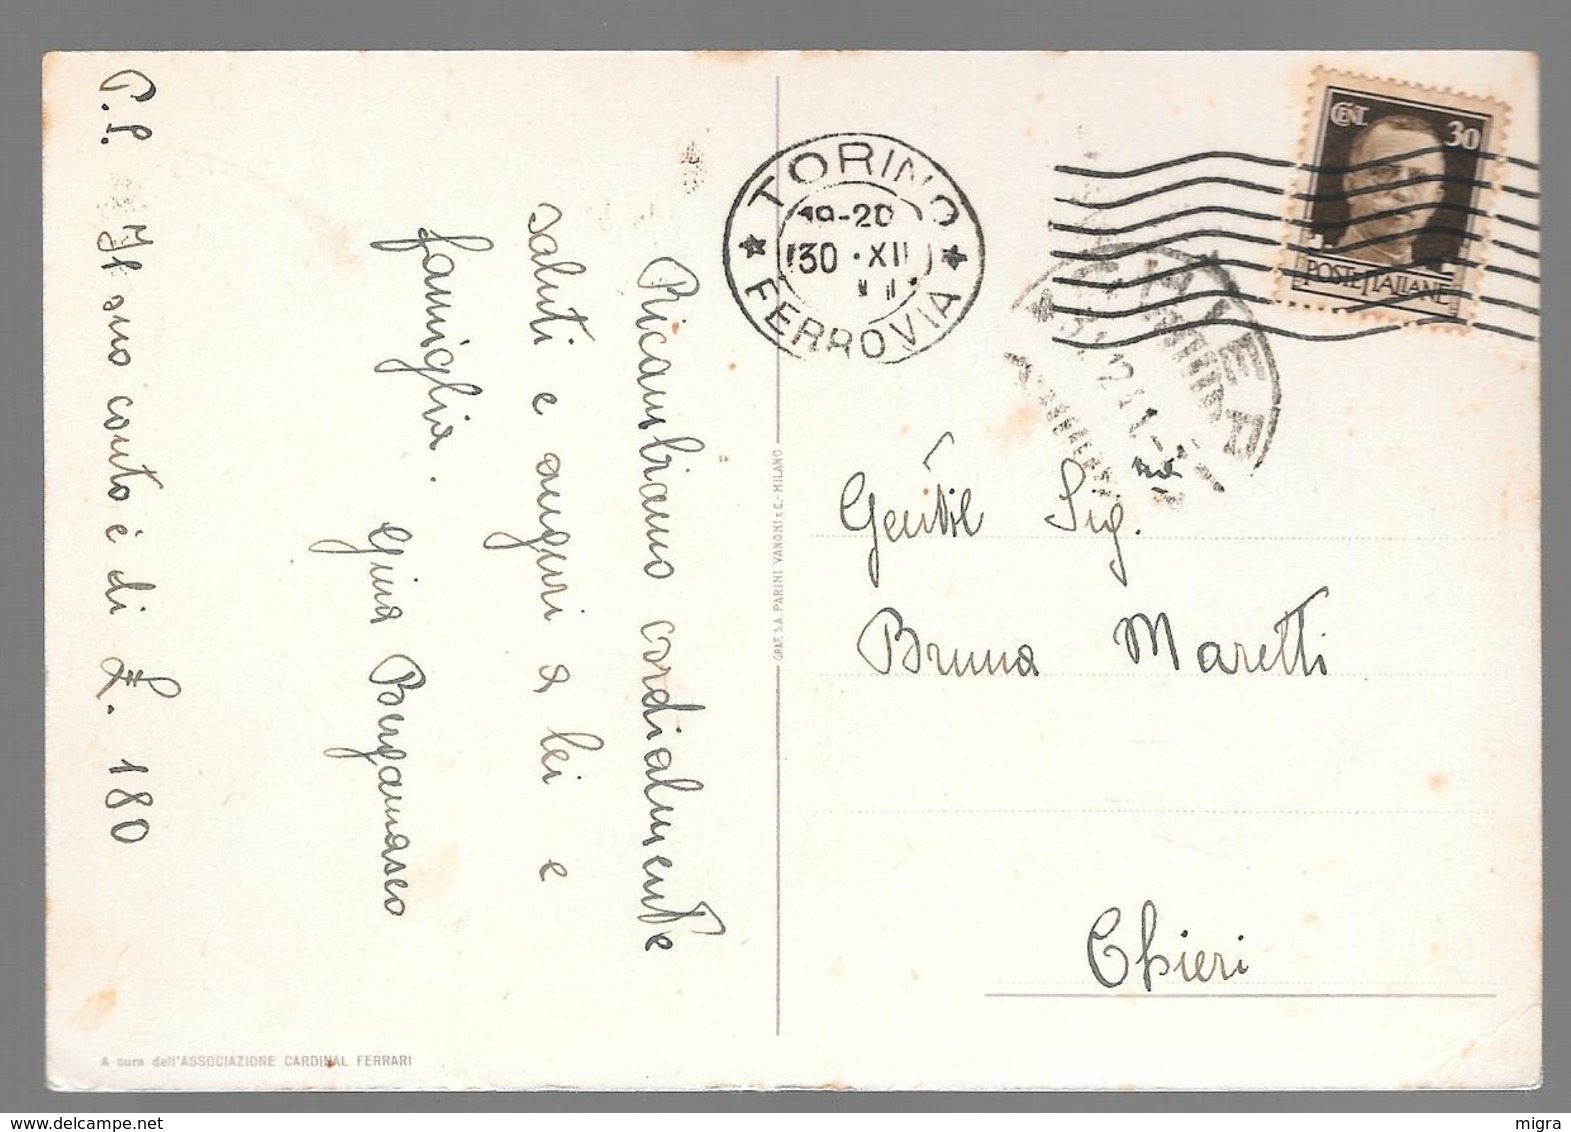 Ricambiamo cordialmente
saluti e auguri a lei e
famiglia.
Gina Bergamasco
P.S. Il suo conto è di £. 180
A cura dell'ASSOCIAZIONE CARDINAL FERRARI
GRAF. S.A. PARINI VANONI E C. - MILANO
TORINO
19-20
30 · XII
FERROVIA
CHIERI
CENT. 30
POSTE ITALIANE
Gentil Sig.na
Bruna Maretti
Chieri
migra